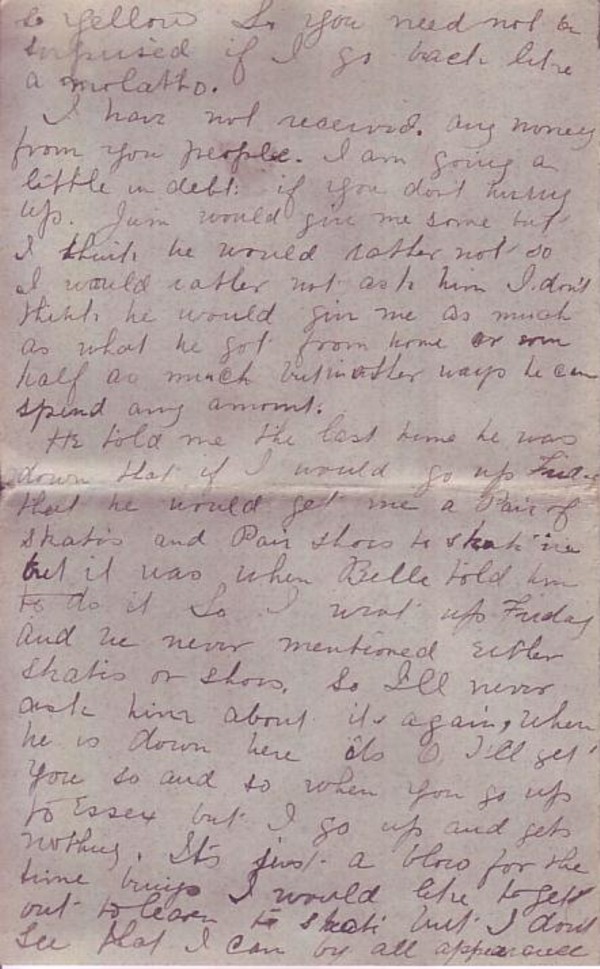 so yellow So you need not be
surprised if I go back like
a molatto.
I have not received. any money
from you people. I am going a
little in debt. if you don't hurry
up. Jum would give me some but
I think he would rather not so
I would rather not ask him I don't
think he would give me as much
as what he got from home or even
half as much but in other ways he can
spend any amount.
He told me the last time he was
down that if I would go up Friday
that he would get me a Pair of
skates and Pair shoes to skate in
but it was when Belle told him
to do it So I went up Friday
and he never mentioned Either
skates or shoes, So I'll never
ask him about it again, When
he is down here its O I'll get
you so and so when you go up
to Essex but I go up and gets
nothing. Its just a blow for the
time being I would like to get
out to learn to skate but I don't
see that I can by all appearance